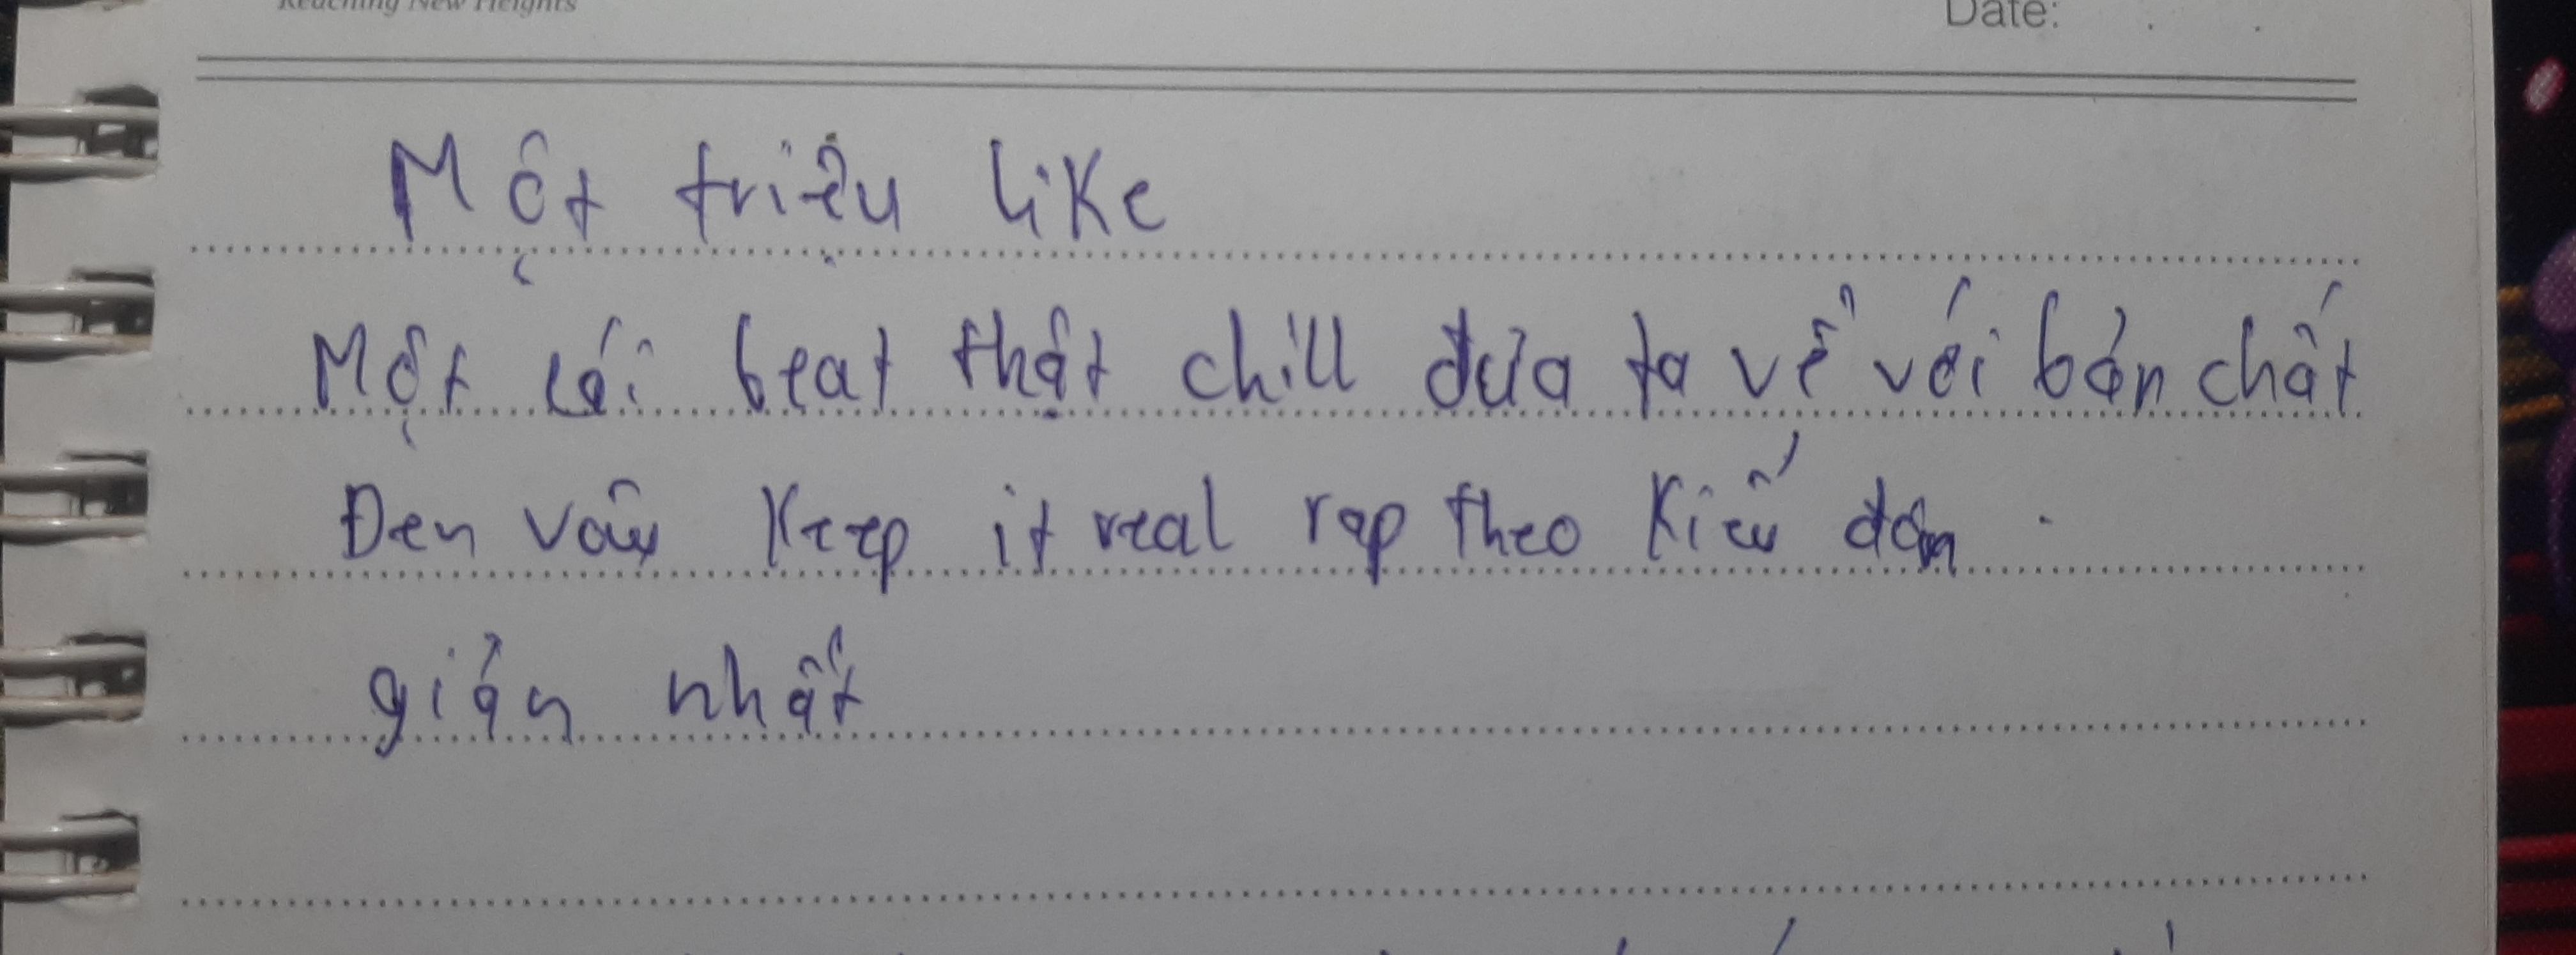 Reaching New Heights
Date:
Một triệu like
Một cái beat thật chill đưa ta về với bản chất
Đen vâu Keep it real rap theo Kiểu đơn
giản nhất